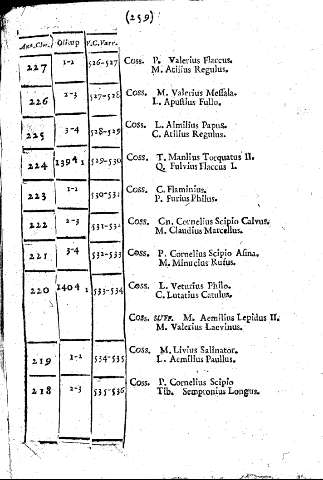 (259)
Ant. Chr. Olimp V.C. Varr.
227 1-2 526-527 Coss. P. Valerius Flaccus.
M. Atilius Regulus.
226 2-3 527-528 Coss. M. Valerius Messala.
L. Apustius Fullo.
225 3-4 528-529 Coss. L. Almilius Papus.
C. Atilius Regulus.
224 1394 1 529-530 Coss. T. Manlius Torquatus II.
Q. Fulvius Flaccus I.
223 1-2 530-531 Coss. C. Flaminius.
P. Furius Philus.
222 2-3 531-532 Coss. Cn. Cornelius Scipio Calvus.
M. Claudius Marcellus.
221 3-4 532-533 Coss. P. Cornelius Scipio Asina.
M. Minucius Rufus.
220 1404 1 533-534 Coss. L. Veturius Philo.
C. Lutatius Catulus.
Coss. suff. M. Aemilius Lepidus II.
M. Valerius Laevinus.
219 1-2 534-535 Coss. M. Livius Salinator.
L. Aemilius Paullus.
218 2-3 535-536 Coss. P. Cornelius Scipio
Tib. Sempronius Longus.